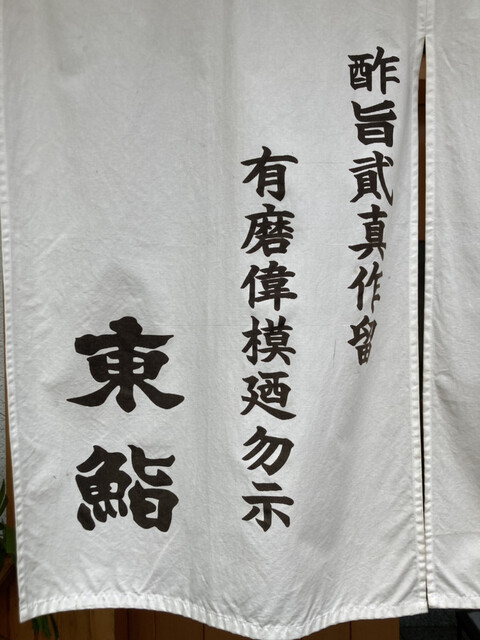 酢旨貮真作留
有磨偉模廼勿示
東鮨